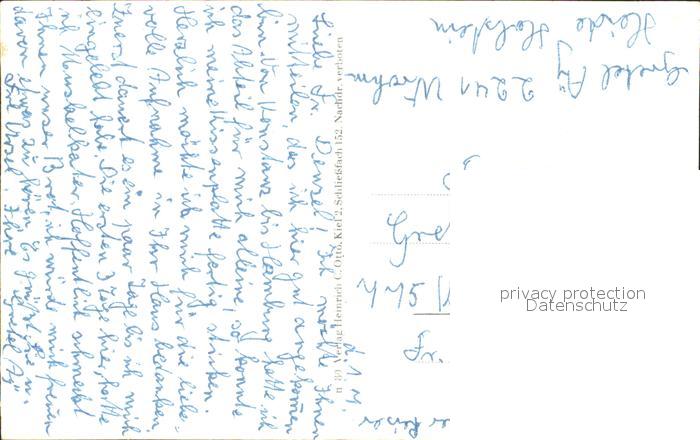 d. 1. 4.
Liebe Fr. Denzel! Ich möchte Ihnen
mitteilen, das ich hier gut angekommen
bin. Von Konstanz bis Hamburg hatte ich
das Abteil für mich alleine, so konnte
ich meine Kissenplatte fertig sticken.
Herzlich möchte ich mich für die liebe-
volle Aufnahme in Ihr Haus bedanken.
Zuerst dauert es ein paar Tage bis ich mich
eingelebt habe. Die ersten 3 Tage hier, hatte
ich Muskelkater. Hoffentlich schmeckt
Ihnen unser Brot, ich würde mich freuen
davon etwas zu hören. Es grüßt Sie u.
Ihre Gretel
Verlag Heinrich C. Otto, Kiel 2, Schließfach 152. Nachdr. verboten
Gretel
2241 Wrohm
Heide Holstein
775
Fr.
privacy protection
Datenschutz